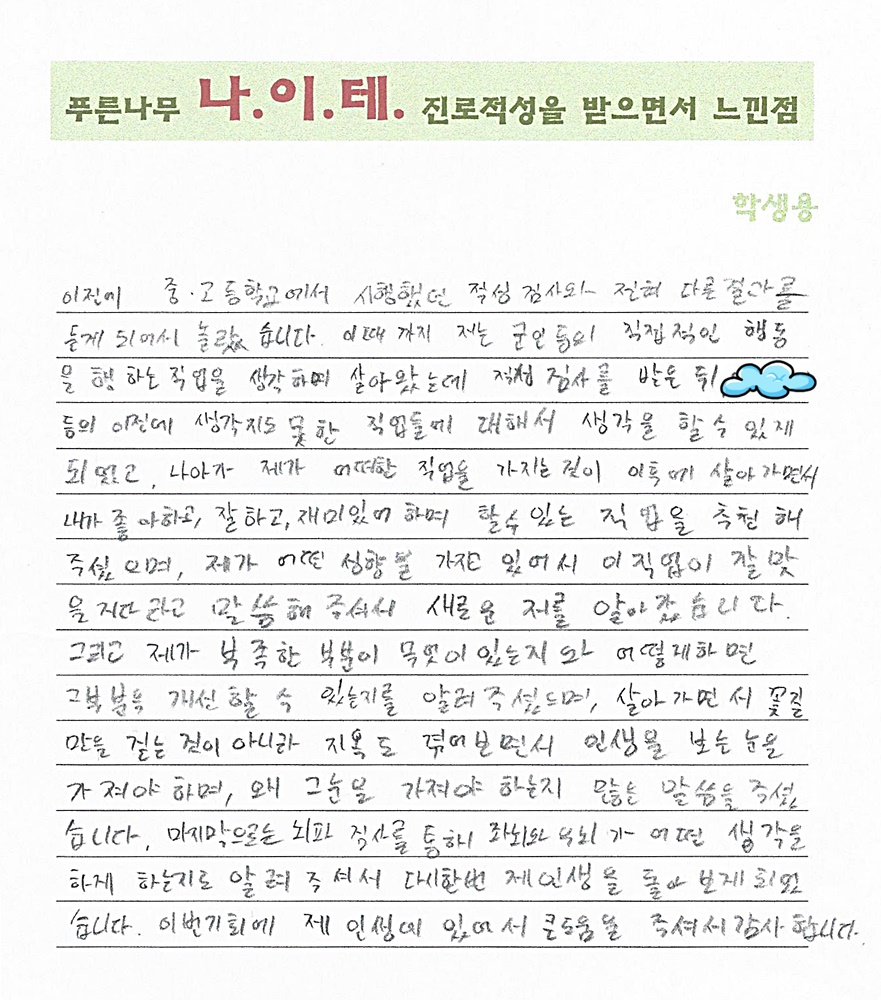 푸른나무 나.이.테. 진로적성을 받으면서 느낀점
학생용
이전에 중·고등학교에서 시행했던 적성 검사와 전혀 다른결과를
듣게 되어서 놀랐습니다. 이때까지 저는 군인등의 직접적인 행동
을 행하는 직업을 생각하며 살아왔는데 적성 검사를 받은 뒤
등의 이전에 생각지도 못한 직업들에 대해서 생각을 할수 있게
되었고, 나아가 제가 어떠한 직업을 가지는것이 이후에 살아가면서
내가 좋아하고, 잘하고, 재미있어 하며 할수 있는 직업을 추천해
주셨으며, 제가 어떤 성향을 가지고 있어서 이 직업이 잘맞
을지다 라고 말씀해 주셔서 새로운 저를 알아갔습니다.
그리고 제가 부족한 부분이 무엇이 있는지와 어떻게하면
그부분을 개선할 수 있는지를 알려주셨으며, 살아가면서 꽃길
만을 걷는 것이 아니라 지옥도 겪어보면서 인생을 보는눈을
가져야 하며, 왜 그눈을 가져야 하는지 많은 말씀을 주셨
습니다. 마지막으로는 뇌파 검사를 통해 좌뇌와 우뇌가 어떤 생각을
하게 하는지도 알려 주셔서 다시한번 제인생을 돌아보게되었
습니다. 이번기회에 제 인생에 있어서 큰도움을 주셔서 감사합니다.